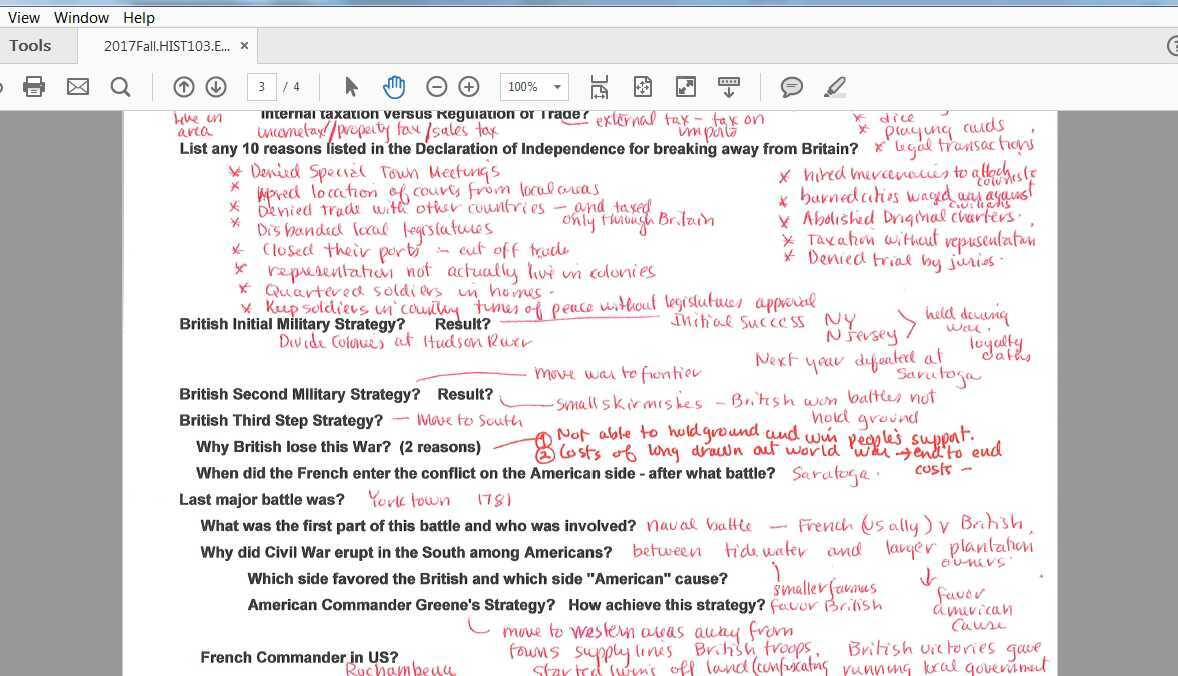 View Window Help
Tools 2017Fall.HIST103.E... ×
3 / 4 100%
Internal taxation versus Regulation of Trade? external tax - tax on imports
live in area
incometax/property tax/sales tax
* dice
* playing cards
* legal transactions
List any 10 reasons listed in the Declaration of Independence for breaking away from Britain?
* Denied Special Town Meetings
* Moved location of courts from local areas
* Denied trade with other countries - and taxed only through Britain
* Disbanded local legislatures
* Closed their ports - cut off trade
* representation not actually live in colonies
* Quartered soldiers in homes.
* Keep soldiers in country times of peace without legislatures approval
* hired mercenaries to attack colonists
* burned cities waged war against civilians
* Abolished Original charters.
* Taxation without representation
* Denied trial by juries.
British Initial Military Strategy? Result? Initial Success NY NJersey > held during war. loyalty oaths
Divide Colonies at Hudson River
Next year defeated at Saratoga
move war to frontier
British Second Military Strategy? Result? small skirmishes - British won battles not hold ground
British Third Step Strategy? - Move to South
Why British lose this War? (2 reasons) ① Not able to hold ground and win people's support.
② Costs of long drawn out world war → end to end costs -
When did the French enter the conflict on the American side - after what battle? Saratoga.
Last major battle was? Yorktown 1781
What was the first part of this battle and who was involved? naval battle - French (US ally) v British.
Why did Civil War erupt in the South among Americans? between tidewater and larger plantation owners.
Which side favored the British and which side "American" cause?
smaller farms favor British
favor american cause
American Commander Greene's Strategy? How achieve this strategy?
move to western areas away from
towns supply lines British troops. British victories gave
French Commander in US?
Rochambeau
started living off land (confiscating running local government